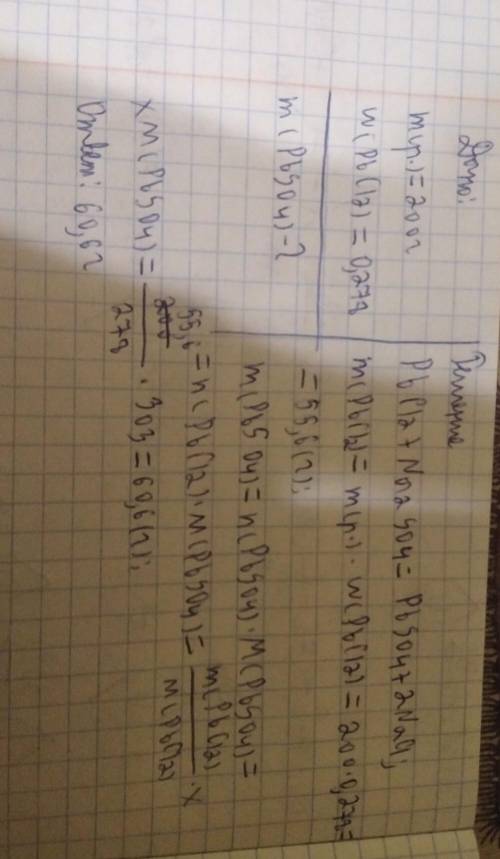 Дано:
m(р.) = 200г
w(PbCl2) = 0,278
m(PbSO4) - ?
Решение
PbCl2 + Na2SO4 = PbSO4 + 2NaCl;
m(PbCl2) = m(р.) · w(PbCl2) = 200·0,278 =
= 55,6(г);
m(PbSO4) = n(PbSO4)·M(PbSO4) =
= n(PbCl2)·M(PbSO4) = m(PbCl2)/M(PbCl2) · x
x M(PbSO4) = 55,6/278 · 303 = 60,6(г);
Ответ: 60,6г